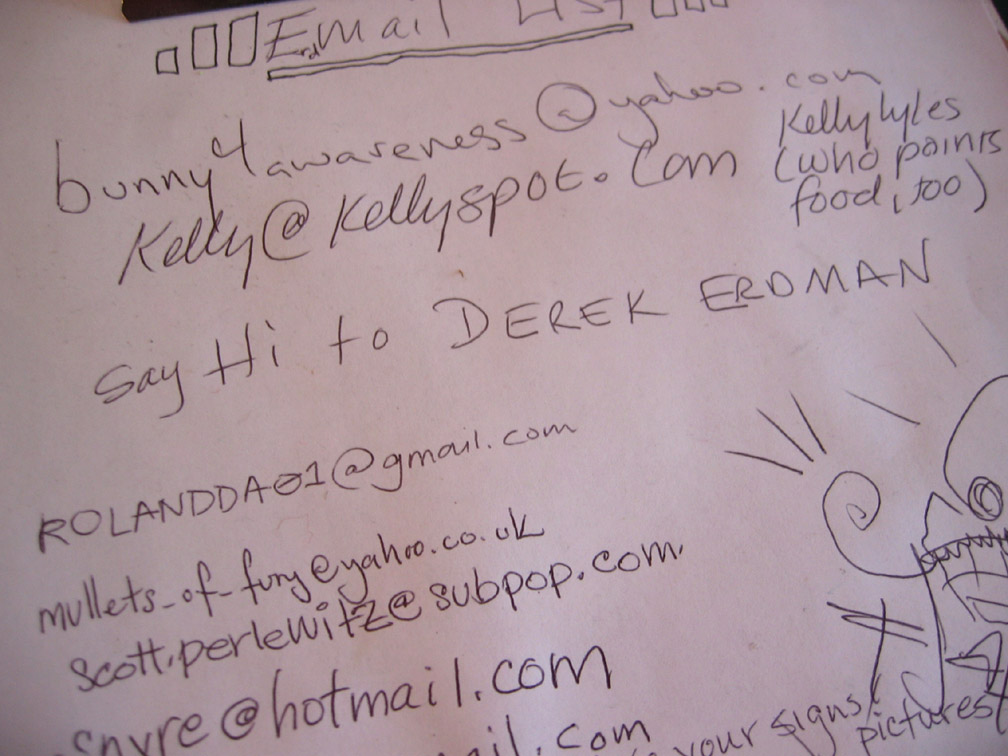 Email List
bunny4awareness@yahoo.com
Kelly@Kellyspot.com
Kelly Lyles
(who paints
food, too)
Say Hi to DEREK ERDMAN
ROLANDDA01@gmail.com
mullets_of_fury@yahoo.co.uk
scott.perlewitz@subpop.com
@hotmail.com
.com
your signs!
pictures!